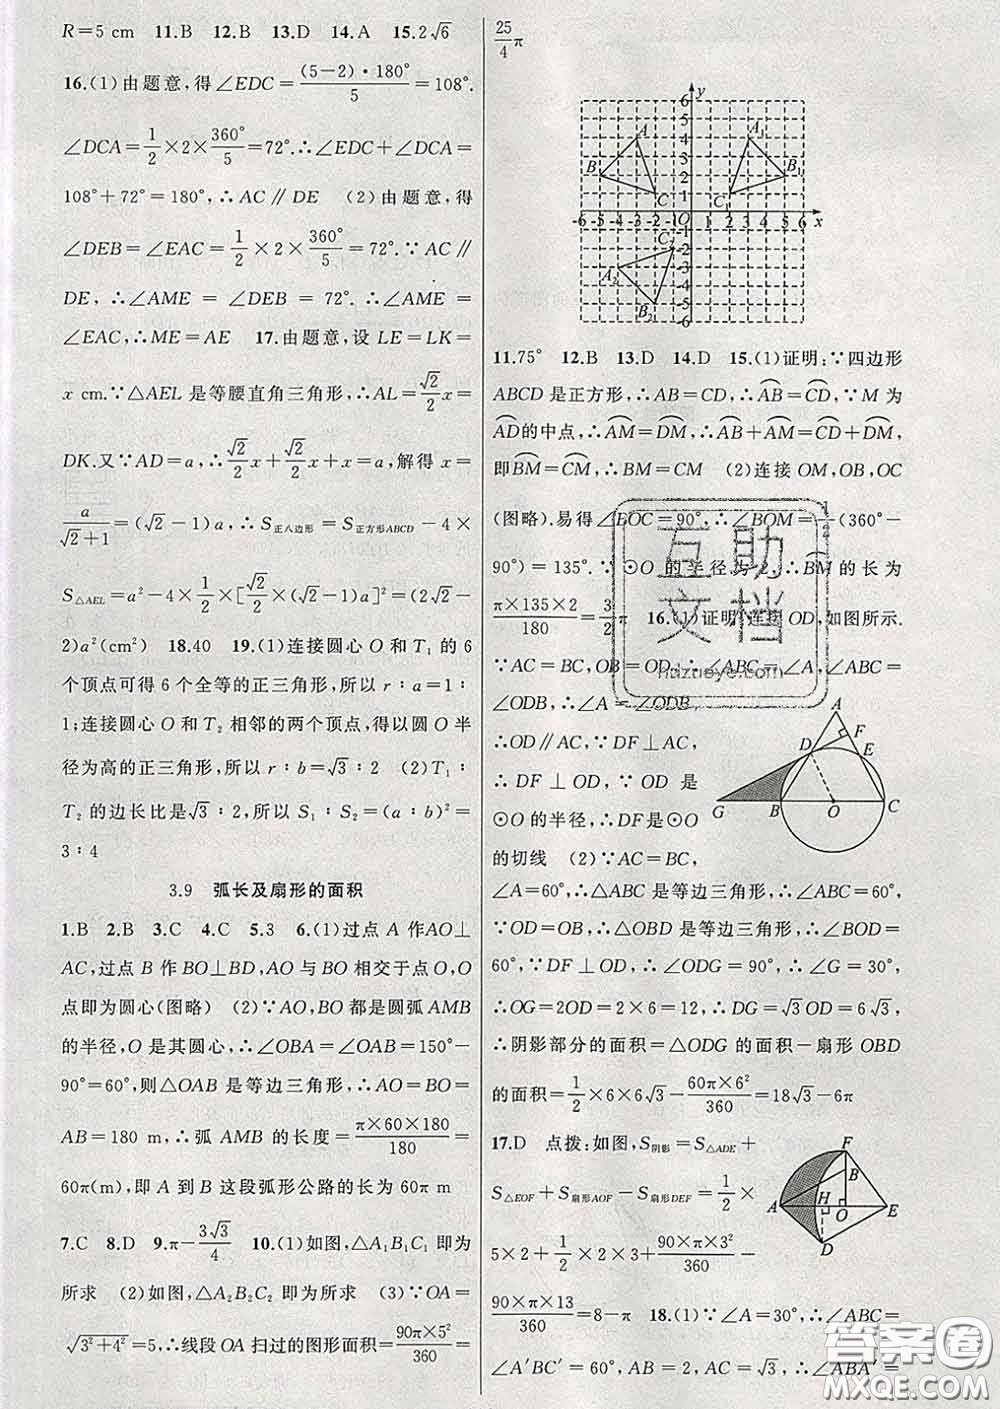 R=5 cm 11.B 12.B 13.D 14.A 15.2√6
16.(1)由题意,得∠EDC=(5-2)·180°/5=108°.
∠DCA=1/2×2×360°/5=72°.∴∠EDC+∠DCA=
108°+72°=180°,∴AC∥DE (2)由题意,得
∠DEB=∠EAC=1/2×2×360°/5=72°.∵AC∥
DE,∴∠AME=∠DEB=72°.∴∠AME=
∠EAC,∴ME=AE 17.由题意,设LE=LK=
x cm.∵△AEL是等腰直角三角形,∴AL=√2/2x=
DK.又∵AD=a,∴√2/2x+√2/2x+x=a,解得x=
a/(√2+1)=(√2-1)a,∴S正八边形=S正方形ABCD-4×
S△AEL=a²-4×1/2×[√2/2×(√2-1)a]²=(2√2-
2)a²(cm²) 18.40 19.(1)连接圆心O和T₁的6
个顶点可得6个全等的正三角形,所以r∶a=1∶
1;连接圆心O和T₂相邻的两个顶点,得以圆O半
径为高的正三角形,所以r∶b=√3∶2 (2)T₁∶
T₂的边长比是√3∶2,所以S₁∶S₂=(a∶b)²=
3∶4
3.9 弧长及扇形的面积
1.B 2.B 3.C 4.C 5.3 6.(1)过点A作AO⊥
AC,过点B作BO⊥BD,AO与BO相交于点O,O
点即为圆心(图略) (2)∵AO,BO都是圆弧AMB
的半径,O是其圆心,∴∠OBA=∠OAB=150°-
90°=60°,则△OAB是等边三角形,∴AO=BO=
AB=180 m,∴弧AMB的长度=π×60×180/180=
60π(m),即A到B这段弧形公路的长为60π m
7.C 8.D 9.π-3√3/4 10.(1)如图,△A₁B₁C₁即为
所求 (2)如图,△A₂B₂C₂即为所求 (3)∵OA=
√(3²+4²)=5,∴线段OA扫过的图形面积=90π×5²/360=
25/4π
y
6
5
4
3
2
1
A A₁
B B₁
C C₁
-6 -5 -4 -3 -2 -1 O 1 2 3 4 5 6 x
-1
-2
-3
-4
-5
-6
C₂
A₂
B₂
11.75° 12.B 13.D 14.D 15.(1)证明:∵四边形
ABCD是正方形,∴AB=CD,∴AB⌒=CD⌒,∵M为
AD⌒的中点,∴AM⌒=DM⌒,∴AB⌒+AM⌒=CD⌒+DM⌒,
即BM⌒=CM⌒,∴BM=CM (2)连接OM,OB,OC
(图略).易得∠BOC=90°,∴∠BOM=1/2(360°-
90°)=135°.∵⊙O的半径为2,∴BM⌒的长为
π×135×2/180=3/2π 16.(1)证明:连接OD,如图所示.
∵AC=BC,OB=OD,∴∠ABC=∠A,∠ABC=
∠ODB,∴∠A=∠ODB,
∴OD∥AC,∵DF⊥AC,
∴DF⊥OD,∵OD是
⊙O的半径,∴DF是⊙O
的切线 (2)∵AC=BC,
A
F
D
E
G B O C
∠A=60°,∴△ABC是等边三角形,∴∠ABC=60°,
∵OD=OB,∴△OBD是等边三角形,∴∠BOD=
60°,∵DF⊥OD,∴∠ODG=90°,∴∠G=30°,
∴OG=2OD=2×6=12,∴DG=√3OD=6√3,
∴阴影部分的面积=△ODG的面积-扇形OBD
的面积=1/2×6×6√3-60π×6²/360=18√3-6π
17.D 点拨:如图,S阴影=S△ADE+
S△EOF+S扇形AOF-S扇形DEF=1/2×
5×2+1/2×2×3+90×π×3²/360-
F
B
H
A O E
D
90×π×13/360=8-π 18.(1)∵∠A=30°,∴∠ABC=
∠A′BC′=60°,AB=2,AC=√3,∴∠ABA′=
互助
文档
huizuoye.com
答案圈
MXQE.COM